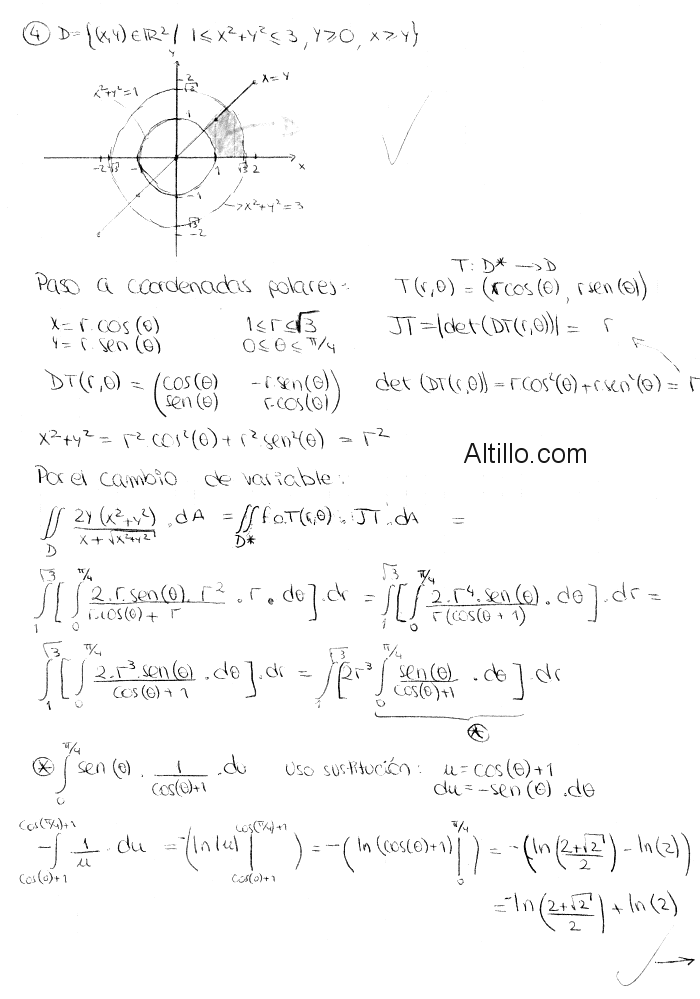 ④ D={(x,y) ∈ ℝ² / 1 ≤ x²+y² ≤ 3, y ≥ 0, x ≥ y}
y
x²+y²=1
2
√2
x=y
1
-2 -√3 -1 1 √3 2 x
-1
√3
-2
→ x²+y²=3
T: D* → D
Paso a coordenadas polares: T(r,θ) = (r cos(θ), r sen(θ))
x = r·cos(θ) 1 ≤ r ≤ √3 JT = |det(DT(r,θ))| = r
y = r·sen(θ) 0 ≤ θ ≤ π/4
DT(r,θ) = (cos(θ) -r sen(θ)) det(DT(r,θ)) = r cos²(θ) + r sen²(θ) = r
(sen(θ) r·cos(θ))
x²+y² = r²·cos²(θ) + r²·sen²(θ) = r²
Altillo.com
Por el cambio de variable:
∬_D 2y(x²+y²)/(x+√(x²+y²)) · dA = ∬_D* f∘T(r,θ) · JT · dA =
∫_1^√3 [∫_0^π/4 2·r·sen(θ)·r²/(r·cos(θ)+r) · r · dθ]·dr = ∫_1^√3 [∫_0^π/4 2·r⁴·sen(θ)/(r(cos(θ)+1)) · dθ]·dr =
∫_1^√3 [∫_0^π/4 2·r³·sen(θ)/(cos(θ)+1) · dθ]·dr = ∫_1^√3 [2r³ ∫_0^π/4 sen(θ)/(cos(θ)+1) · dθ]·dr
⊛
⊛ ∫_0^π/4 sen(θ) · 1/(cos(θ)+1) · du Uso sustitución: u = cos(θ)+1
du = -sen(θ)·dθ
-∫_cos(0)+1^cos(π/4)+1 1/u · du = -(ln|u| |_cos(0)+1^cos(π/4)+1) = -(ln(cos(θ)+1) |_0^π/4) = -(ln((2+√2)/2) - ln(2))
= -ln((2+√2)/2) + ln(2)
→